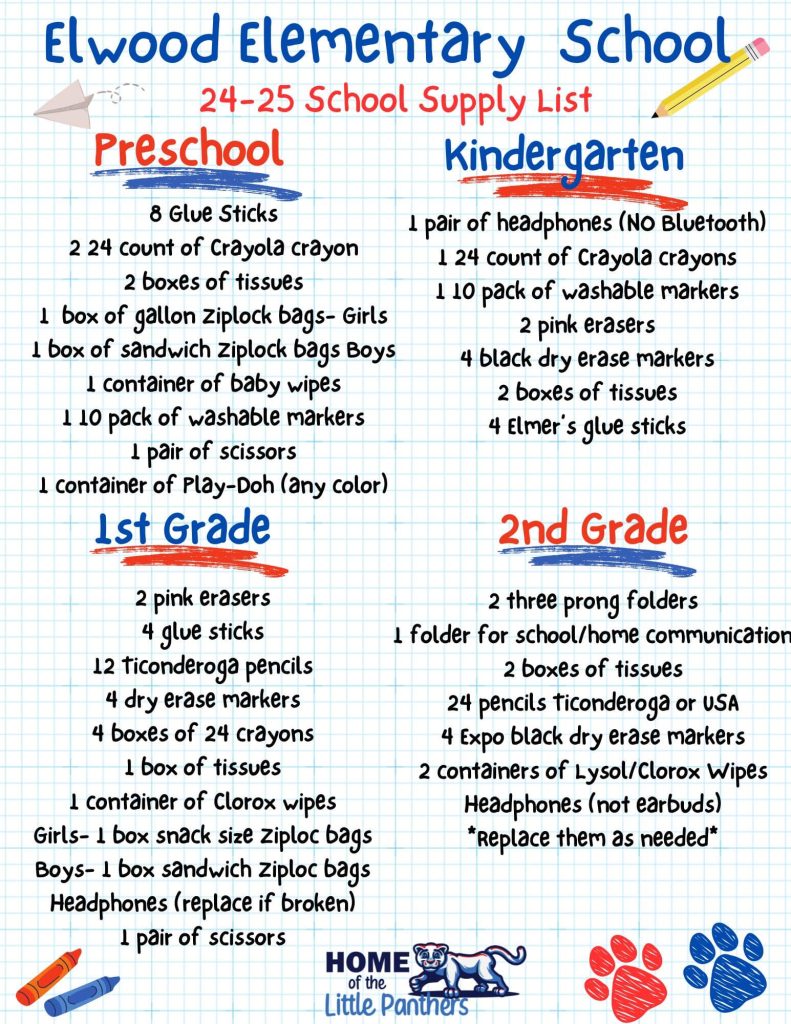 Elwood Elementary School
24-25 School Supply List
Preschool
8 Glue Sticks
2 24 count of Crayola crayon
2 boxes of tissues
1 box of gallon ziplock bags- Girls
1 box of sandwich ziplock bags Boys
1 container of baby wipes
1 10 pack of washable markers
1 pair of scissors
1 container of Play-Doh (any color)
Kindergarten
1 pair of headphones (NO Bluetooth)
1 24 count of Crayola crayons
1 10 pack of washable markers
2 pink erasers
4 black dry erase markers
2 boxes of tissues
4 Elmer's glue sticks
1st Grade
2 pink erasers
4 glue sticks
12 Ticonderoga pencils
4 dry erase markers
4 boxes of 24 crayons
1 box of tissues
1 container of Clorox wipes
Girls- 1 box snack size ziploc bags
Boys- 1 box sandwich ziploc bags
Headphones (replace if broken)
1 pair of scissors
2nd Grade
2 three prong folders
1 folder for school/home communication
2 boxes of tissues
24 pencils Ticonderoga or USA
4 Expo black dry erase markers
2 containers of Lysol/Clorox Wipes
Headphones (not earbuds)
*Replace them as needed*
HOME
of the
Little Panthers